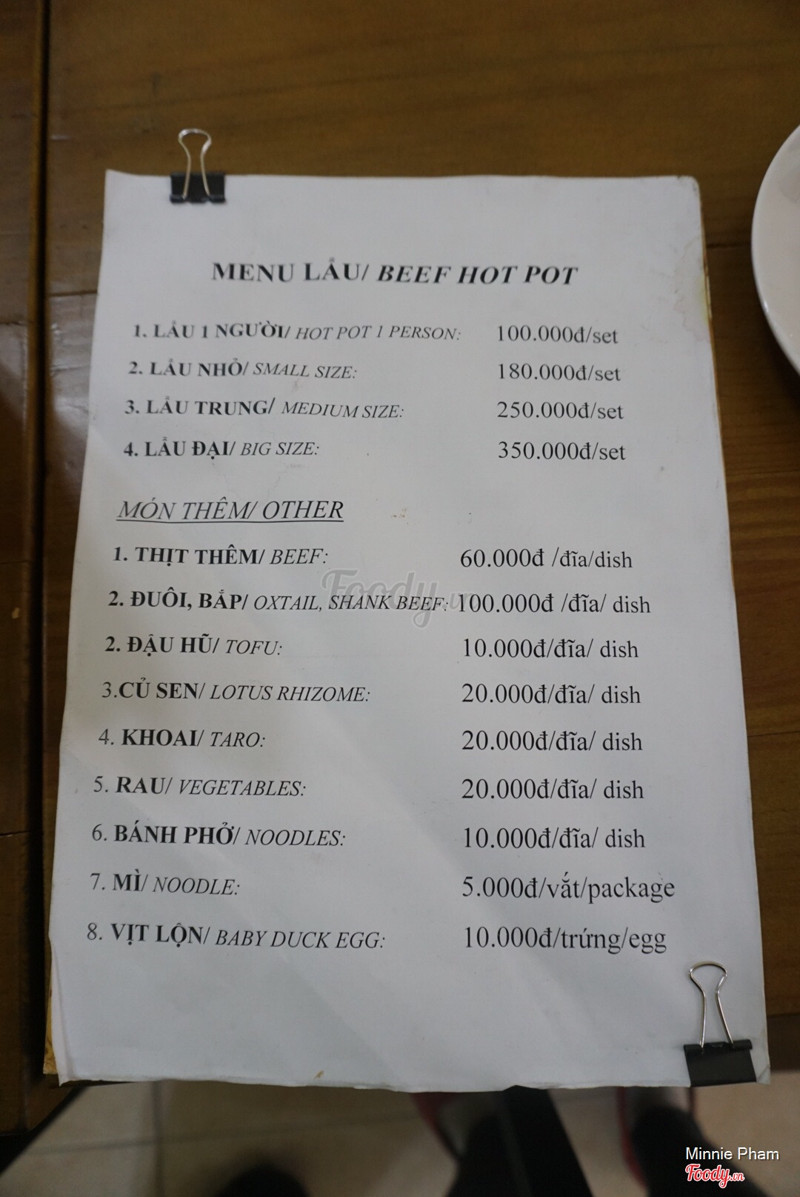 MENU LẨU/ BEEF HOT POT
1. LẨU 1 NGƯỜI/ HOT POT 1 PERSON: 100.000đ/set
2. LẨU NHỎ/ SMALL SIZE: 180.000đ/set
3. LẨU TRUNG/ MEDIUM SIZE: 250.000đ/set
4. LẨU ĐẠI/ BIG SIZE: 350.000đ/set
MÓN THÊM/ OTHER
1. THỊT THÊM/ BEEF: 60.000đ /đĩa/dish
2. ĐUÔI, BẮP/ OXTAIL, SHANK BEEF: 100.000đ /đĩa/ dish
2. ĐẬU HŨ/ TOFU: 10.000đ/đĩa/ dish
3.CỦ SEN/ LOTUS RHIZOME: 20.000đ/đĩa/ dish
4. KHOAI/ TARO: 20.000đ/đĩa/ dish
5. RAU/ VEGETABLES: 20.000đ/đĩa/ dish
6. BÁNH PHỞ/ NOODLES: 10.000đ/đĩa/ dish
7. MÌ/ NOODLE: 5.000đ/vắt/package
8. VỊT LỘN/ BABY DUCK EGG: 10.000đ/trứng/egg
Foody.vn
Minnie Pham
Foody.vn